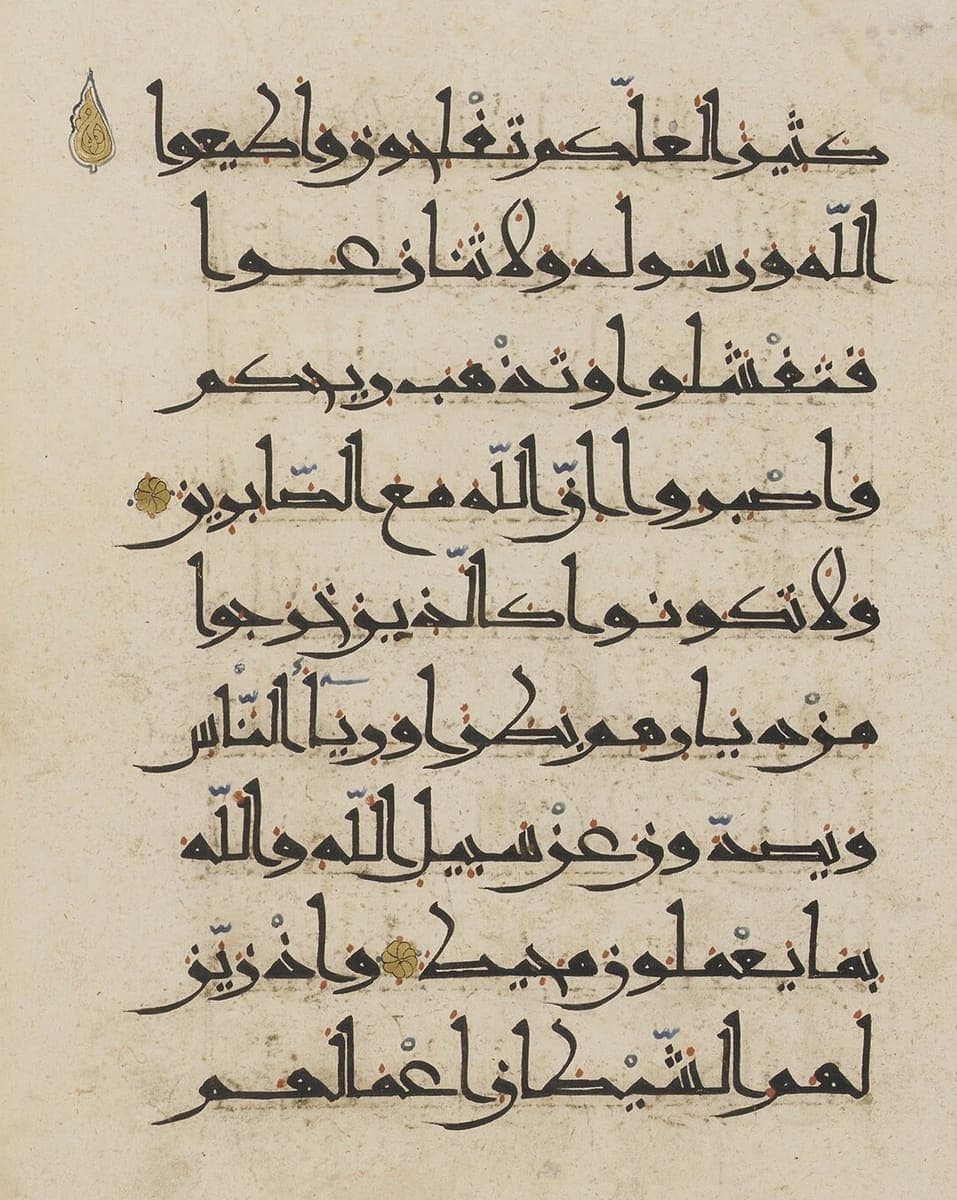 كثيرا لعلّكم تفْلحون وأطيعوا
اللّه ورسوله ولا تنازعوا
فتفْشلوا وتذْهب ريحكم
واصْبروا إنّ اللّه مع الصّابرين
ولا تكونوا كالّذين خرجوا
منْ ديارهم بطرا ورئآء النّاس
ويصدّون عنْ سبيل اللّه واللّه
بما يعْملون محيط وإذْ زيّن
لهم الشّيْطان أعْمالهم